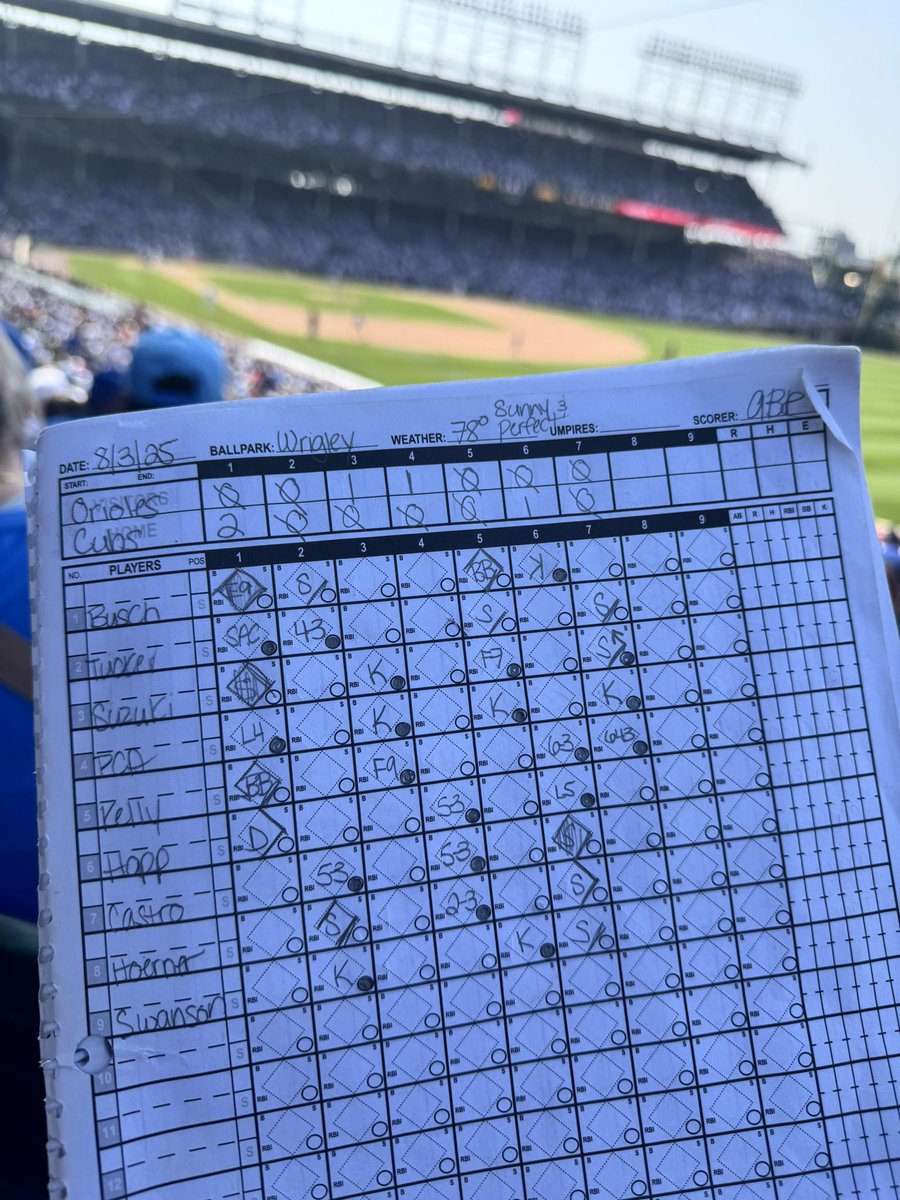 Sunny &
DATE: 8/3/25 BALLPARK: Wrigley WEATHER: 78° Perfect UMPIRES: SCORER: GBP
START: END: 1 2 3 4 5 6 7 8 9 R H E
VISITORS Orioles 0 0 1 1 0 0 0
HOME Cubs 2 0 0 0 0 1 0
NO. PLAYERS POS 1 2 3 4 5 6 7 8 9 AB R H RBI BB K
1 Busch S E9 S BB K
2 Tucker S SAC 43 S S
3 Suzuki S K F7 S
4 PCA S L4 K K K
5 Kelly S BB F9 63 643
6 Happ S D 53 L5
7 Castro S 53 53
8 Hoerner S S 2-3 S
9 Swanson S K K S
10 S
11 S
12